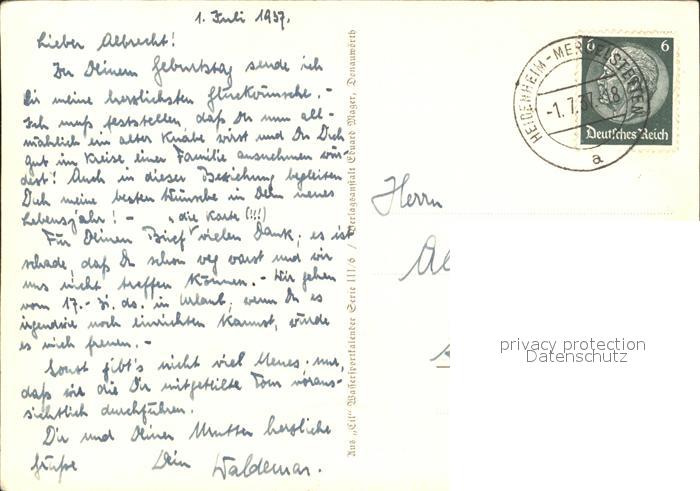 1. Juli 1937.
Lieber Albrecht!
Zu Deinem Geburtstag sende ich
Dir meine herzlichsten Glückwünsche. -
Ich muß feststellen, daß Du nun all-
mählich ein alter Knabe wirst und Du Dich
gut im Kreise einer Familie ausnehmen wür-
dest! Auch in dieser Beziehung begleiten
Dich meine besten Wünsche in Dein neues
Lebensjahr! - u. die Karte (!!!)
Für Deinen Brief vielen Dank; es ist
schade, daß Du schon weg warst und wir
uns nicht treffen können. - Wir gehen
vom 17. - 31. ds. in Urlaub, wenn Du es
irgendwie noch einrichten kannst, würde
es mich freuen. -
Sonst gibt's nicht viel Neues, nur,
daß wir die Dir mitgeteilte Tour voraus-
sichtlich durchführen.
Dir und Deiner Mutter herzliche
Grüße Dein Waldemar.
Aus „Eil" Wassersportkalender Serie III/6 / Verlagsanstalt Eduard Mager, Donauwörth
HEIDENHEIM-MERGELSTETTEN
-1.7.37. 8
a
6 6
Deutsches Reich
Herrn
Al
privacy protection
Datenschutz